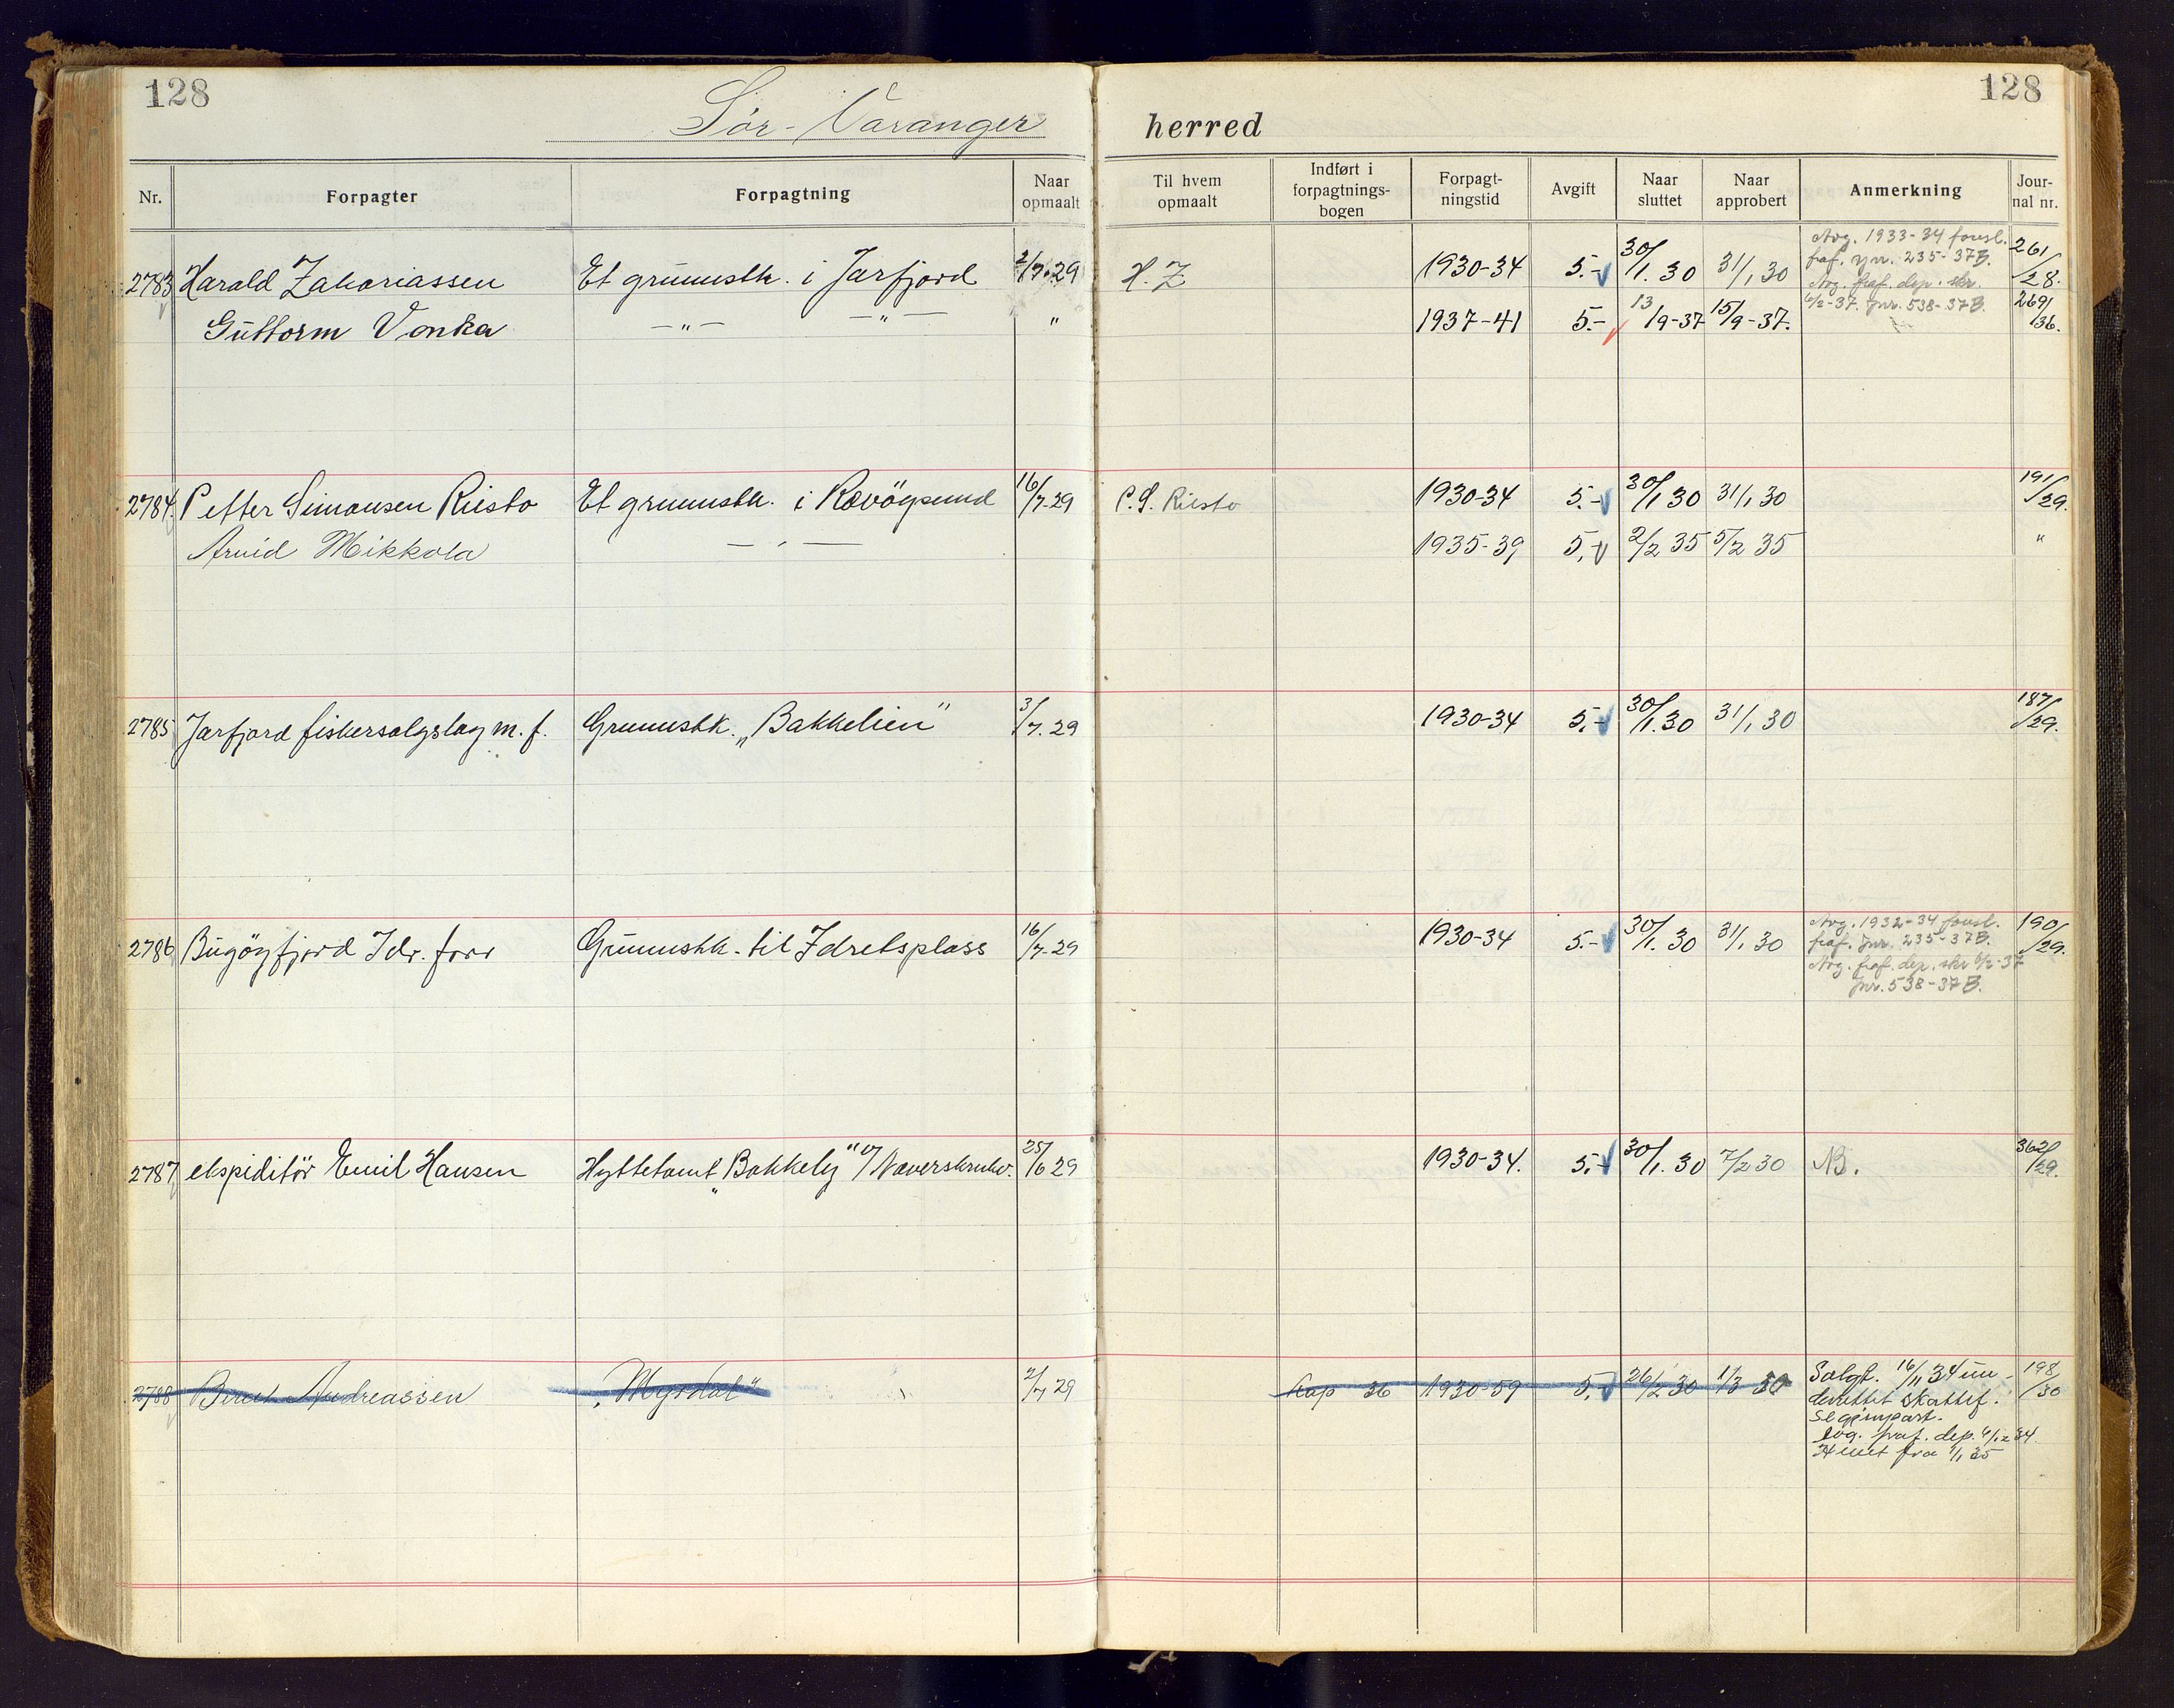 128
128
Sör-Varanger herred
Nr. Forpagter Forpagtning Naar opmaalt Til hvem opmaalt Indført i forpagtnings-bogen Forpagt-ningstid Avgift Naar sluttet Naar approbert Anmerkning Jour-nal nr.
2783 Harald Zakariassen Et grunnstk. i Jarfjord 2/7.29 H. Z 1930-34 5.- 30/1.30 31/1 30 Avg. 1933-34 foresl. fraf. jnr. 235-37B. 261/28.
Avg. fraf. dep. skr. 6/2-37. jnr. 538-37B.
Guttorm Vonka —"— —"— " 1937-41 5.- 13/9-37 15/9-37. 2691/36.
2784 Petter Simonsen Riesto Et grunnstk. i Rævöysund 16/7-29 P.S. Riesto 1930-34 5.- 30/1 30 31/1 30 191/29.
Arvid Mikkola —"— 1935-39 5,- 2/2 35 5/2 35 "
2785 Jarfjord fiskersalgslag m.f. Grunnstk. „Bakkelien" 3/7.29 1930-34 5.- 30/1.30 31/1 30 187/29.
2786 Bugöyfjord Idr. forr Grunnstk. til Idretsplass 16/7-29 1930-34 5.- 30/1.30 31/1 30 Avg. 1932-34 foresl. 190/29.
fraf. jnr. 235-37B.
Avg. fraf. dep. skr 6/2-37
jnr. 538-37B.
2787 ekspiditör Emil Hansen Hyttetomt „Bakkely" v/ Næverskrukv. 25/6 29 1930-34. 5.- 30/1.30 7/2 30 NB. 362/29.
2788 Bernt Andreassen „Myrdal" 2/7 29 Kap 36 1930-59 5.- 26/2 30 1/3 30 Solgt. 16/11 34 un- 198/30
derettet skattef.
se gjenpart.
avg. fraf. dep. 6/12 34.
fra 1/1 35